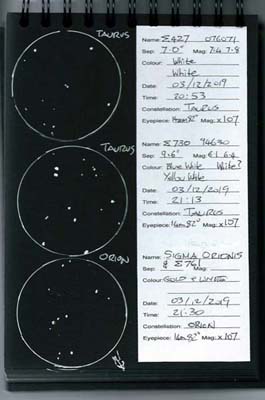 TAURUS
Name: Σ427 076071
Sep: 7.0" Mag: 7.4 7.8
Colour: White
White
Date: 03/12/2019
Time: 20:53
Constellation: TAURUS
Eyepiece: 16mm 82° Mag: x107
TAURUS
Name: Σ730 94630
Sep: 9.6" Mag: 6.1 6.4
Colour: Blue White White?
Yellow White
Date: 03/12/2019
Time: 21:13
Constellation: TAURUS
Eyepiece: 16mm 82° Mag: x107
ORION
Name: SIGMA ORIONIS
& Σ761
Sep: Mag:
Colour: GOLD + WHITE
Date: 03/12/2019
Time: 21:30
Constellation: ORION
Eyepiece: 16mm 82° Mag: x107